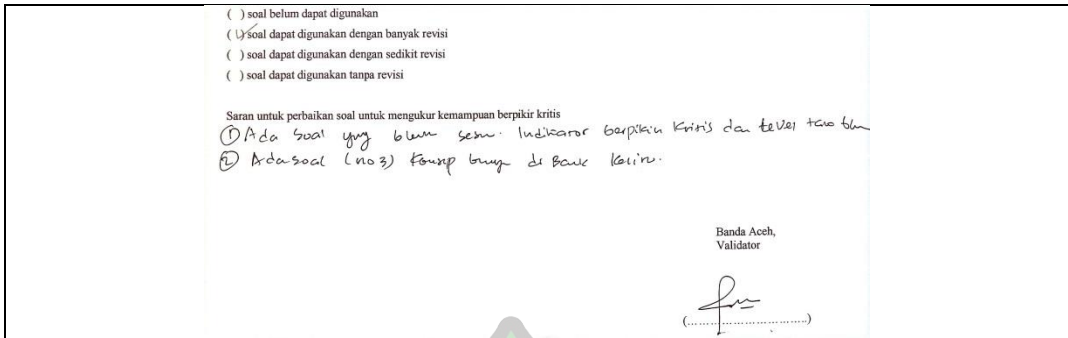 ( ) soal belum dapat digunakan
(√) soal dapat digunakan dengan banyak revisi
( ) soal dapat digunakan dengan sedikit revisi
( ) soal dapat digunakan tanpa revisi
Saran untuk perbaikan soal untuk mengukur kemampuan berpikir kritis
① Ada soal yng blum Indikator berpikir Kritis dan level
② Ada soal (no 3) Konsep di Bank Keliru.
Banda Aceh,
Validator
(................................)